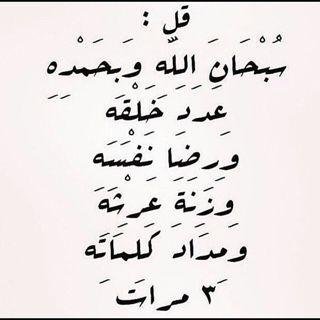 قل :
سُبْحَانَ اللَّهِ وَبِحَمْدِهِ
عَدَدَ خَلْقِهِ
وَرِضَا نَفْسِهِ
وَزِنَةَ عَرْشِهِ
وَمِدَادَ كَلِمَاتِهِ
٣ مرات